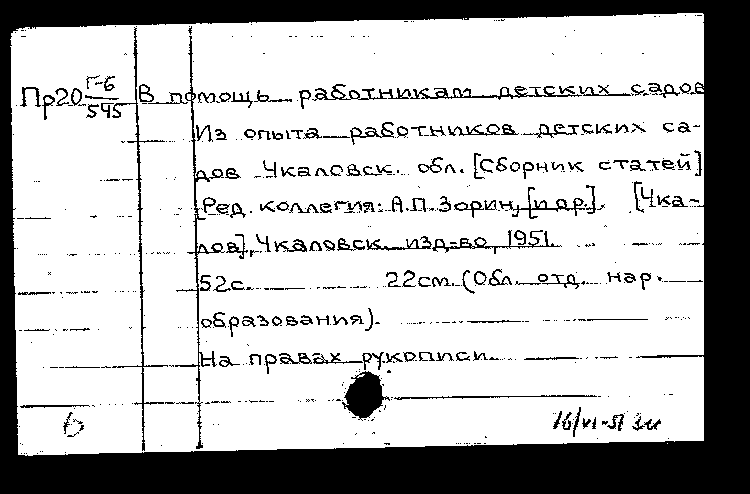 Пр20 Г-6/545 В помощь работникам детских садов
Из опыта работников детских са-
дов Чкаловск. обл. [Сборник статей]
[Ред. коллегия: А.П. Зорин, [и др.]. [Чка-
лов], Чкаловск. изд-во, 1951.
52с. 22см. (Обл. отд. нар.
образования).
На правах рукописи.
6 16/VI-51